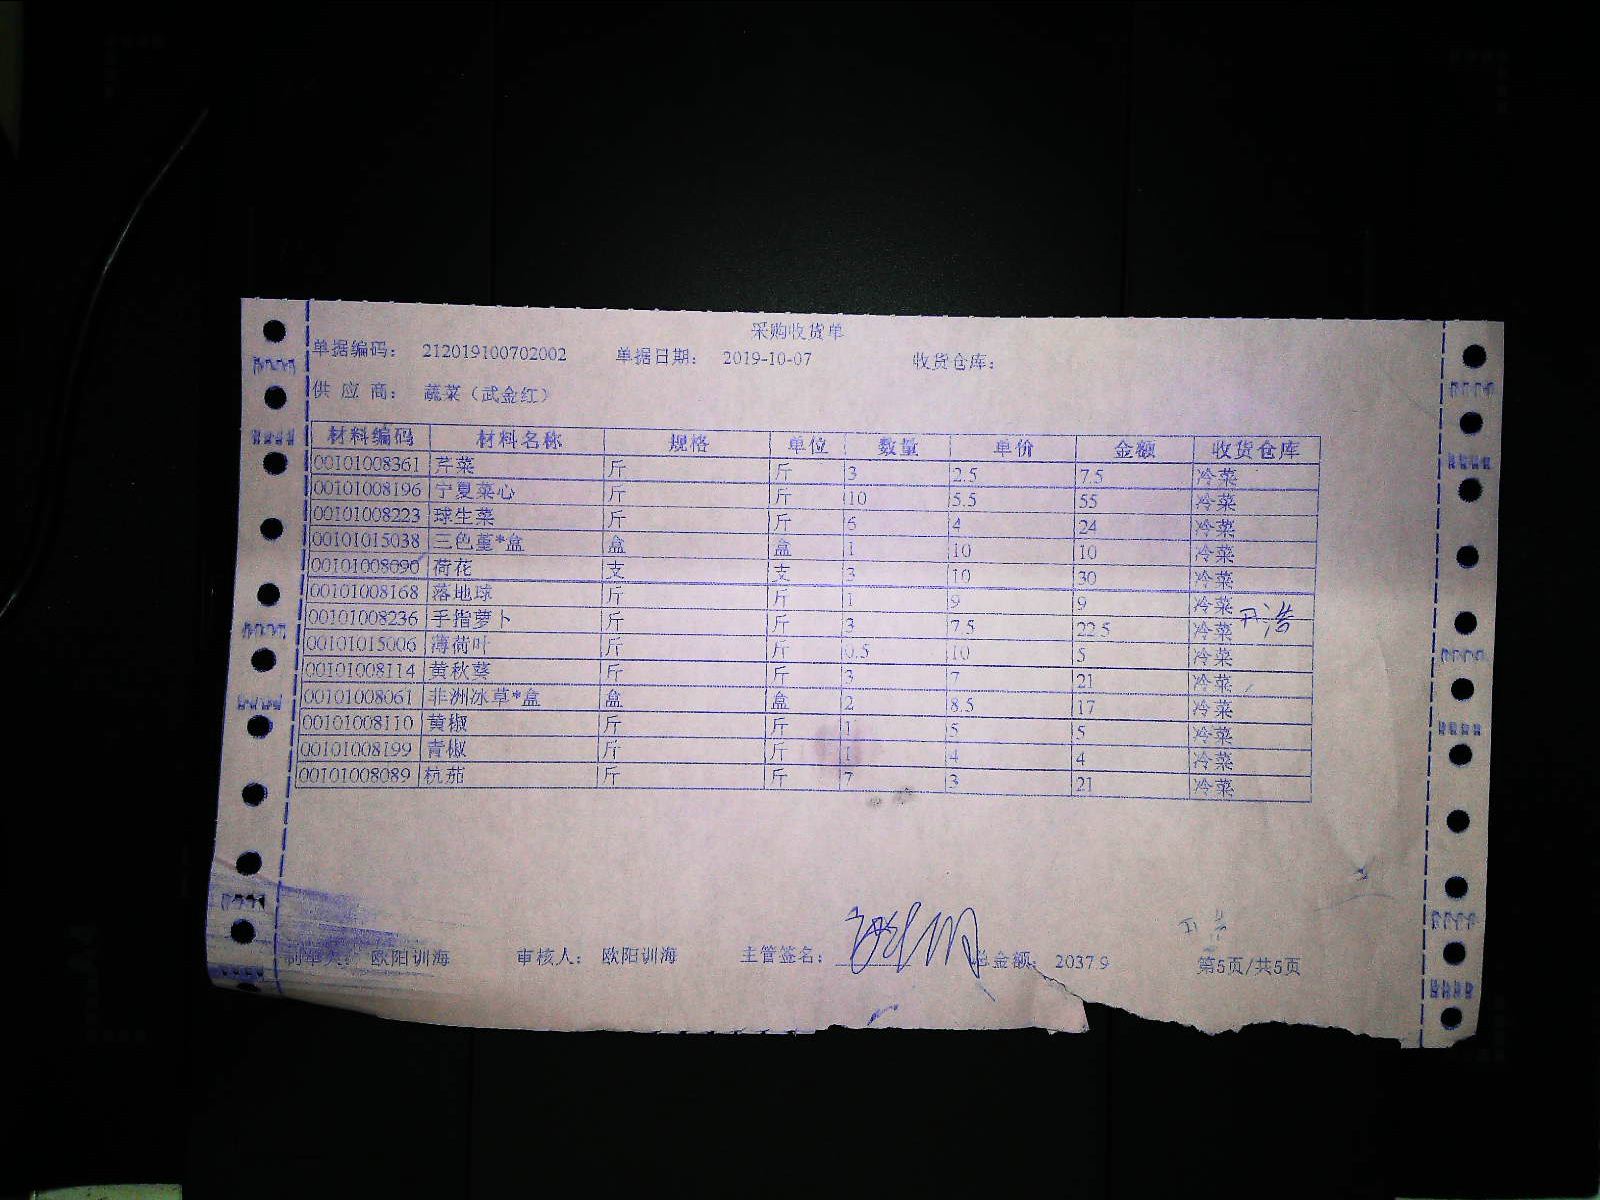 采购收货单
单据编码： 212019100702002 单据日期： 2019-10-07 收货仓库：
供 应 商： 蔬菜（武金红）
材料编码 材料名称 规格 单位 数量 单价 金额 收货仓库
00101008361 芹菜 斤 斤 3 2.5 7.5 冷菜
00101008196 宁夏菜心 斤 斤 10 5.5 55 冷菜
00101008223 球生菜 斤 斤 6 4 24 冷菜
00101015038 三色堇*盒 盒 盒 1 10 10 冷菜
00101008090 荷花 支 支 3 10 30 冷菜
00101008168 落地球 斤 斤 1 9 9 冷菜
00101008236 手指萝卜 斤 斤 3 7.5 22.5 冷菜
00101015006 薄荷叶 斤 斤 0.5 10 5 冷菜
00101008114 黄秋葵 斤 斤 3 7 21 冷菜
00101008061 非洲冰草*盒 盒 盒 2 8.5 17 冷菜
00101008110 黄椒 斤 斤 1 5 5 冷菜
00101008199 青椒 斤 斤 1 4 4 冷菜
00101008089 杭茄 斤 斤 7 3 21 冷菜
欧阳训海 审核人： 欧阳训海 主管签名： 总金额： 2037.9 第5页/共5页